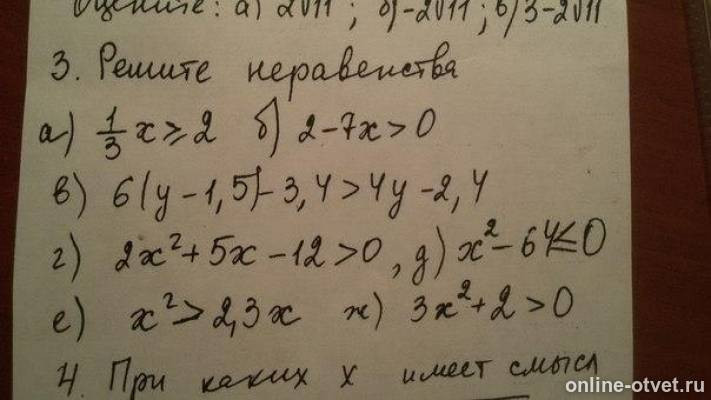 Оцените: а) 2√11 ; б) -2√11 ; в) 3-2√11
3. Решите неравенства
а) 1/3 x ≥ 2 б) 2-7x > 0
в) 6(y-1,5)-3,4>4y-2,4
г) 2x²+5x-12>0, д) x²-64≤0
е) x²>2,3x ж) 3x²+2>0
4. При каких х имеет смысл
online-otvet.ru